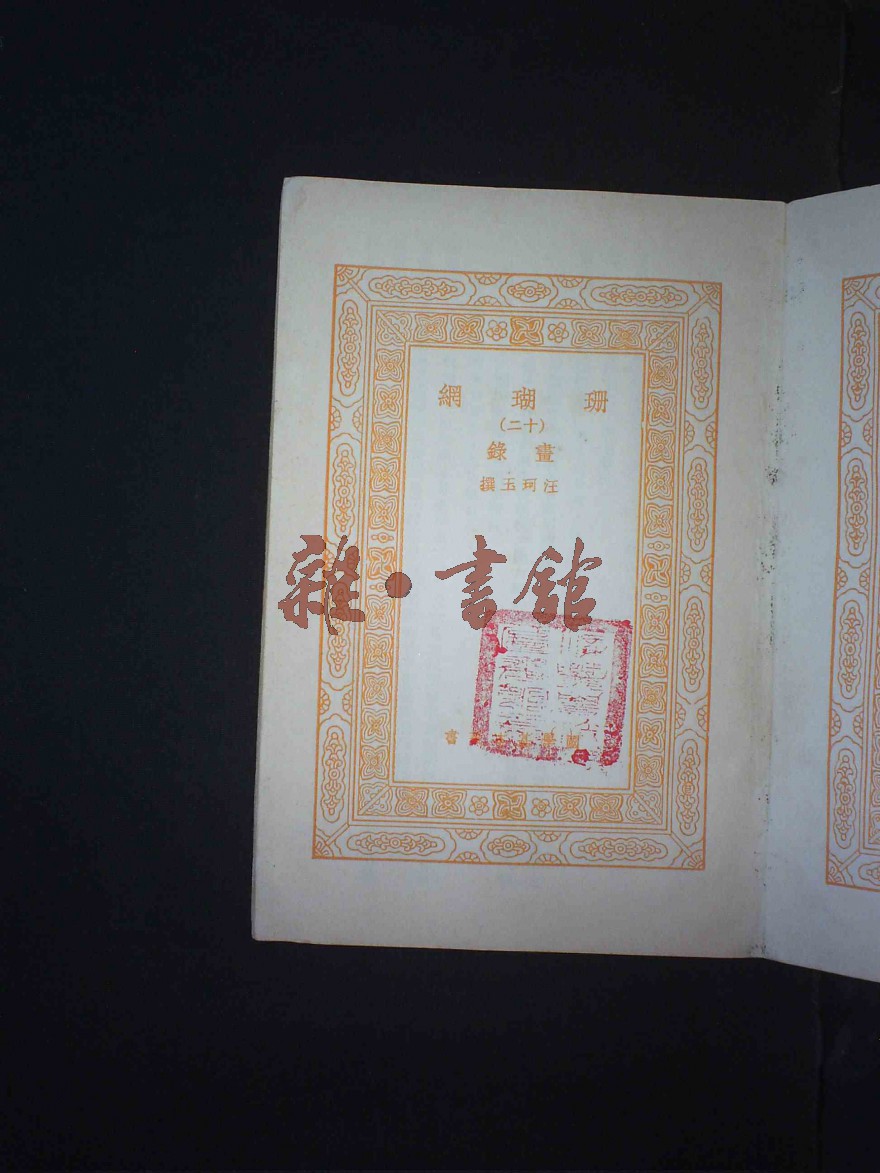 珊瑚網
(十二)
畫錄
汪珂玉撰
雜·書館
國學基本叢書